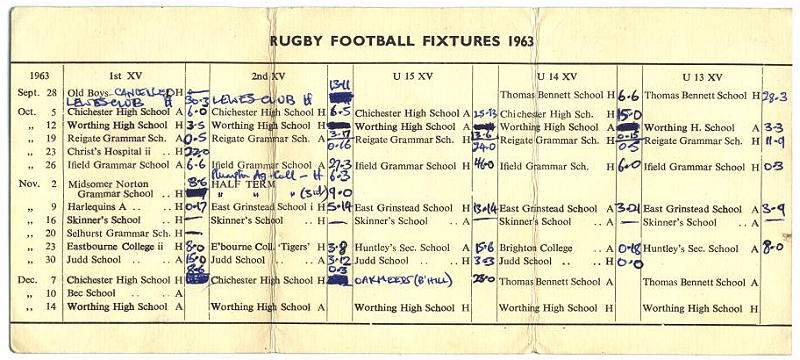 RUGBY FOOTBALL FIXTURES 1963
1963 1st XV 2nd XV U 15 XV U 14 XV U 13 XV
13-11
Sept. 28 Old Boys CANCELLED H — Thomas Bennett School H 6-6 Thomas Bennett School H 28-3
LEWES CLUB H 30-3 LEWES CLUB H
Oct. 5 Chichester High School A 6-0 Chichester High School H 6-5 Chichester High School A 25-13 Chichester High Sch. H 15-0
„ 12 Worthing High School H 3-5 Worthing High School H Worthing High School A Worthing High School A Worthing H. School A 3-3
3-17 13-6 0-15
„ 19 Reigate Grammar Sch. A 0-5 Reigate Grammar Sch. A 0-16 Reigate Grammar Sch. A 24-0 Reigate Grammar Sch. H 0-5 Reigate Grammar Sch. H 11-9
„ 23 Christ's Hospital ii H 22-0
„ 26 Ifield Grammar School A 6-6 Ifield Grammar School A 27-3 Ifield Grammar School H 46-0 Ifield Grammar Sch. H 6-0 Ifield Grammar School H 0-3
Plumpton Ag. Coll - H 6-3
Nov. 2 Midsomer Norton 8-6 HALF TERM
Grammar School .. H „ „ „ (3rd) 9-0
„ 9 Harlequins A .. H 0-17 East Grinstead School ii H 5-14 East Grinstead School H 13-14 East Grinstead School A 3-21 East Grinstead School A 3-9
„ 16 Skinner's School H — Skinner's School .. H — Skinner's School .. A — Skinner's School .. A — Skinner's School .. A —
„ 20 Selhurst Grammar Sch. H —
„ 23 Eastbourne College ii H 8-0 E'bourne Coll. 'Tigers' H 3-8 Huntley's Sec. School A 15-6 Brighton College .. A 0-18 Huntley's Sec. School A 8-0
„ 30 Judd School .. A 15-0 Judd School .. A 3-12 Judd School .. H 3-3 Judd School .. H 0-0
8-6 0-3
Dec. 7 Chichester High School H Chichester High School H OAKMEEDS (B'HILL) 23-0 Thomas Bennett School A Thomas Bennett School A
„ 10 Bec School .. A
„ 14 Worthing High School A Worthing High School A Worthing High School H Worthing High School H Worthing High School H